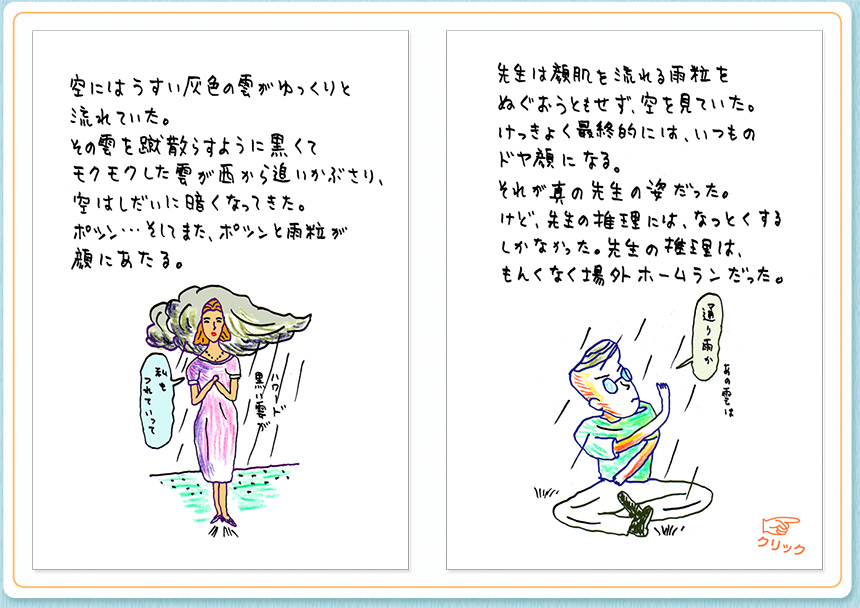 空にはうすい灰色の雲がゆっくりと
流れていた。
その雲を蹴散らすように黒くて
モクモクした雲が西から追いかぶさり、
空はしだいに暗くなってきた。
ポツン…そしてまた、ポツンと雨粒が
顔にあたる。
私も
つれていって
ハワード
黒い雲が
先生は顔肌を流れる雨粒を
ぬぐおうともせず、空を見ていた。
けっきょく最終的には、いつもの
ドヤ顔になる。
それが真の先生の姿だった。
けど、先生の推理には、なっとくする
しかなかった。先生の推理は、
もんくなく場外ホームランだった。
通り雨か
あの雲は
クリック